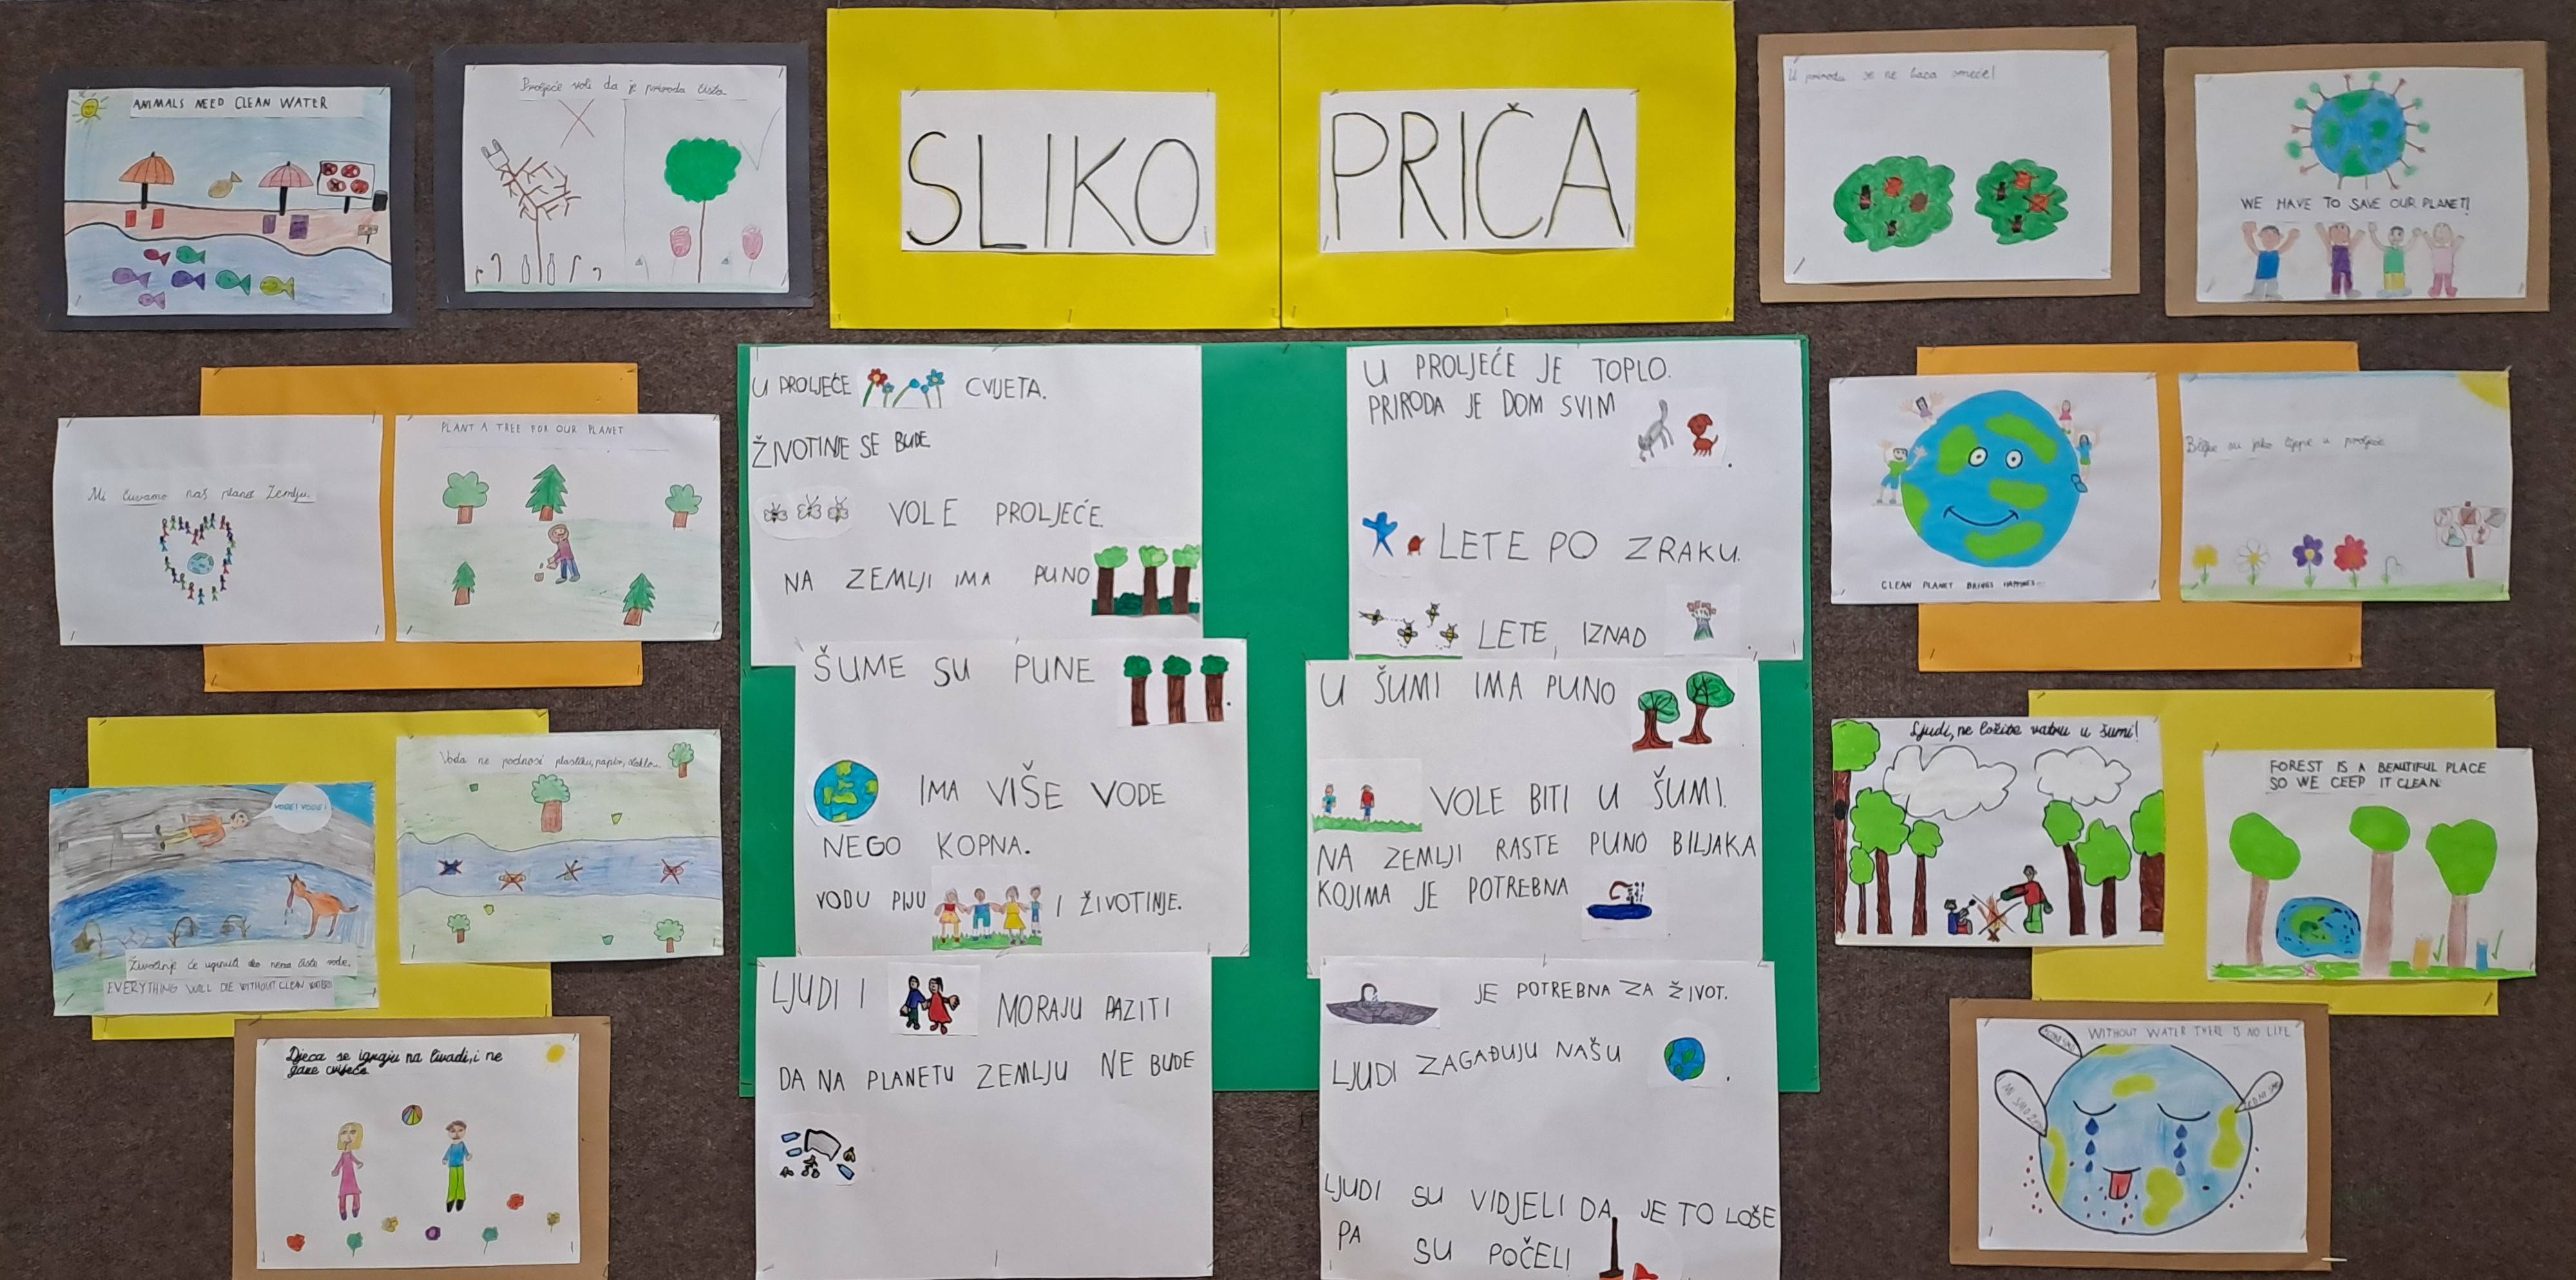 SLIKO PRIČA
ANIMALS NEED CLEAN WATER
Proljeće voli da je priroda čista.
U prirodu se ne baca smeće!
WE HAVE TO SAVE OUR PLANET!
Mi čuvamo naš planet Zemlju.
PLANT A TREE FOR OUR PLANET
U PROLJEĆE CVJETA.
ŽIVOTINJE SE BUDE
VOLE PROLJEĆE.
NA ZEMLJI IMA PUNO
ŠUME SU PUNE .
IMA VIŠE VODE
NEGO KOPNA.
VODU PIJU I ŽIVOTINJE.
LJUDI I MORAJU PAZITI
DA NA PLANETU ZEMLJU NE BUDE
U PROLJEĆE JE TOPLO.
PRIRODA JE DOM SVIM .
LETE PO ZRAKU.
LETE IZNAD
U ŠUMI IMA PUNO .
VOLE BITI U ŠUMI.
NA ZEMLJI RASTE PUNO BILJAKA
KOJIMA JE POTREBNA
JE POTREBNA ZA ŽIVOT.
LJUDI ZAGAĐUJU NAŠU .
LJUDI SU VIDJELI DA JE TO LOŠE
PA SU POČELI
CLEAN PLANET BRINGS
Biljke su jako lijepe u proljeće.
VODE! VODE!
Životinje će uginuti ako nema čiste vode.
EVERYTHING WILL DIE WITHOUT CLEAN WATER!
Voda ne podnosi plastiku, papir, staklo...
Ljudi, ne ložite vatru u šumi!
FOREST IS A BEAUTIFUL PLACE
SO WE CEEP IT CLEAN
Djeca se igraju na livadi, i ne
gaze cvijeće
WITHOUT WATER THERE IS NO LIFE